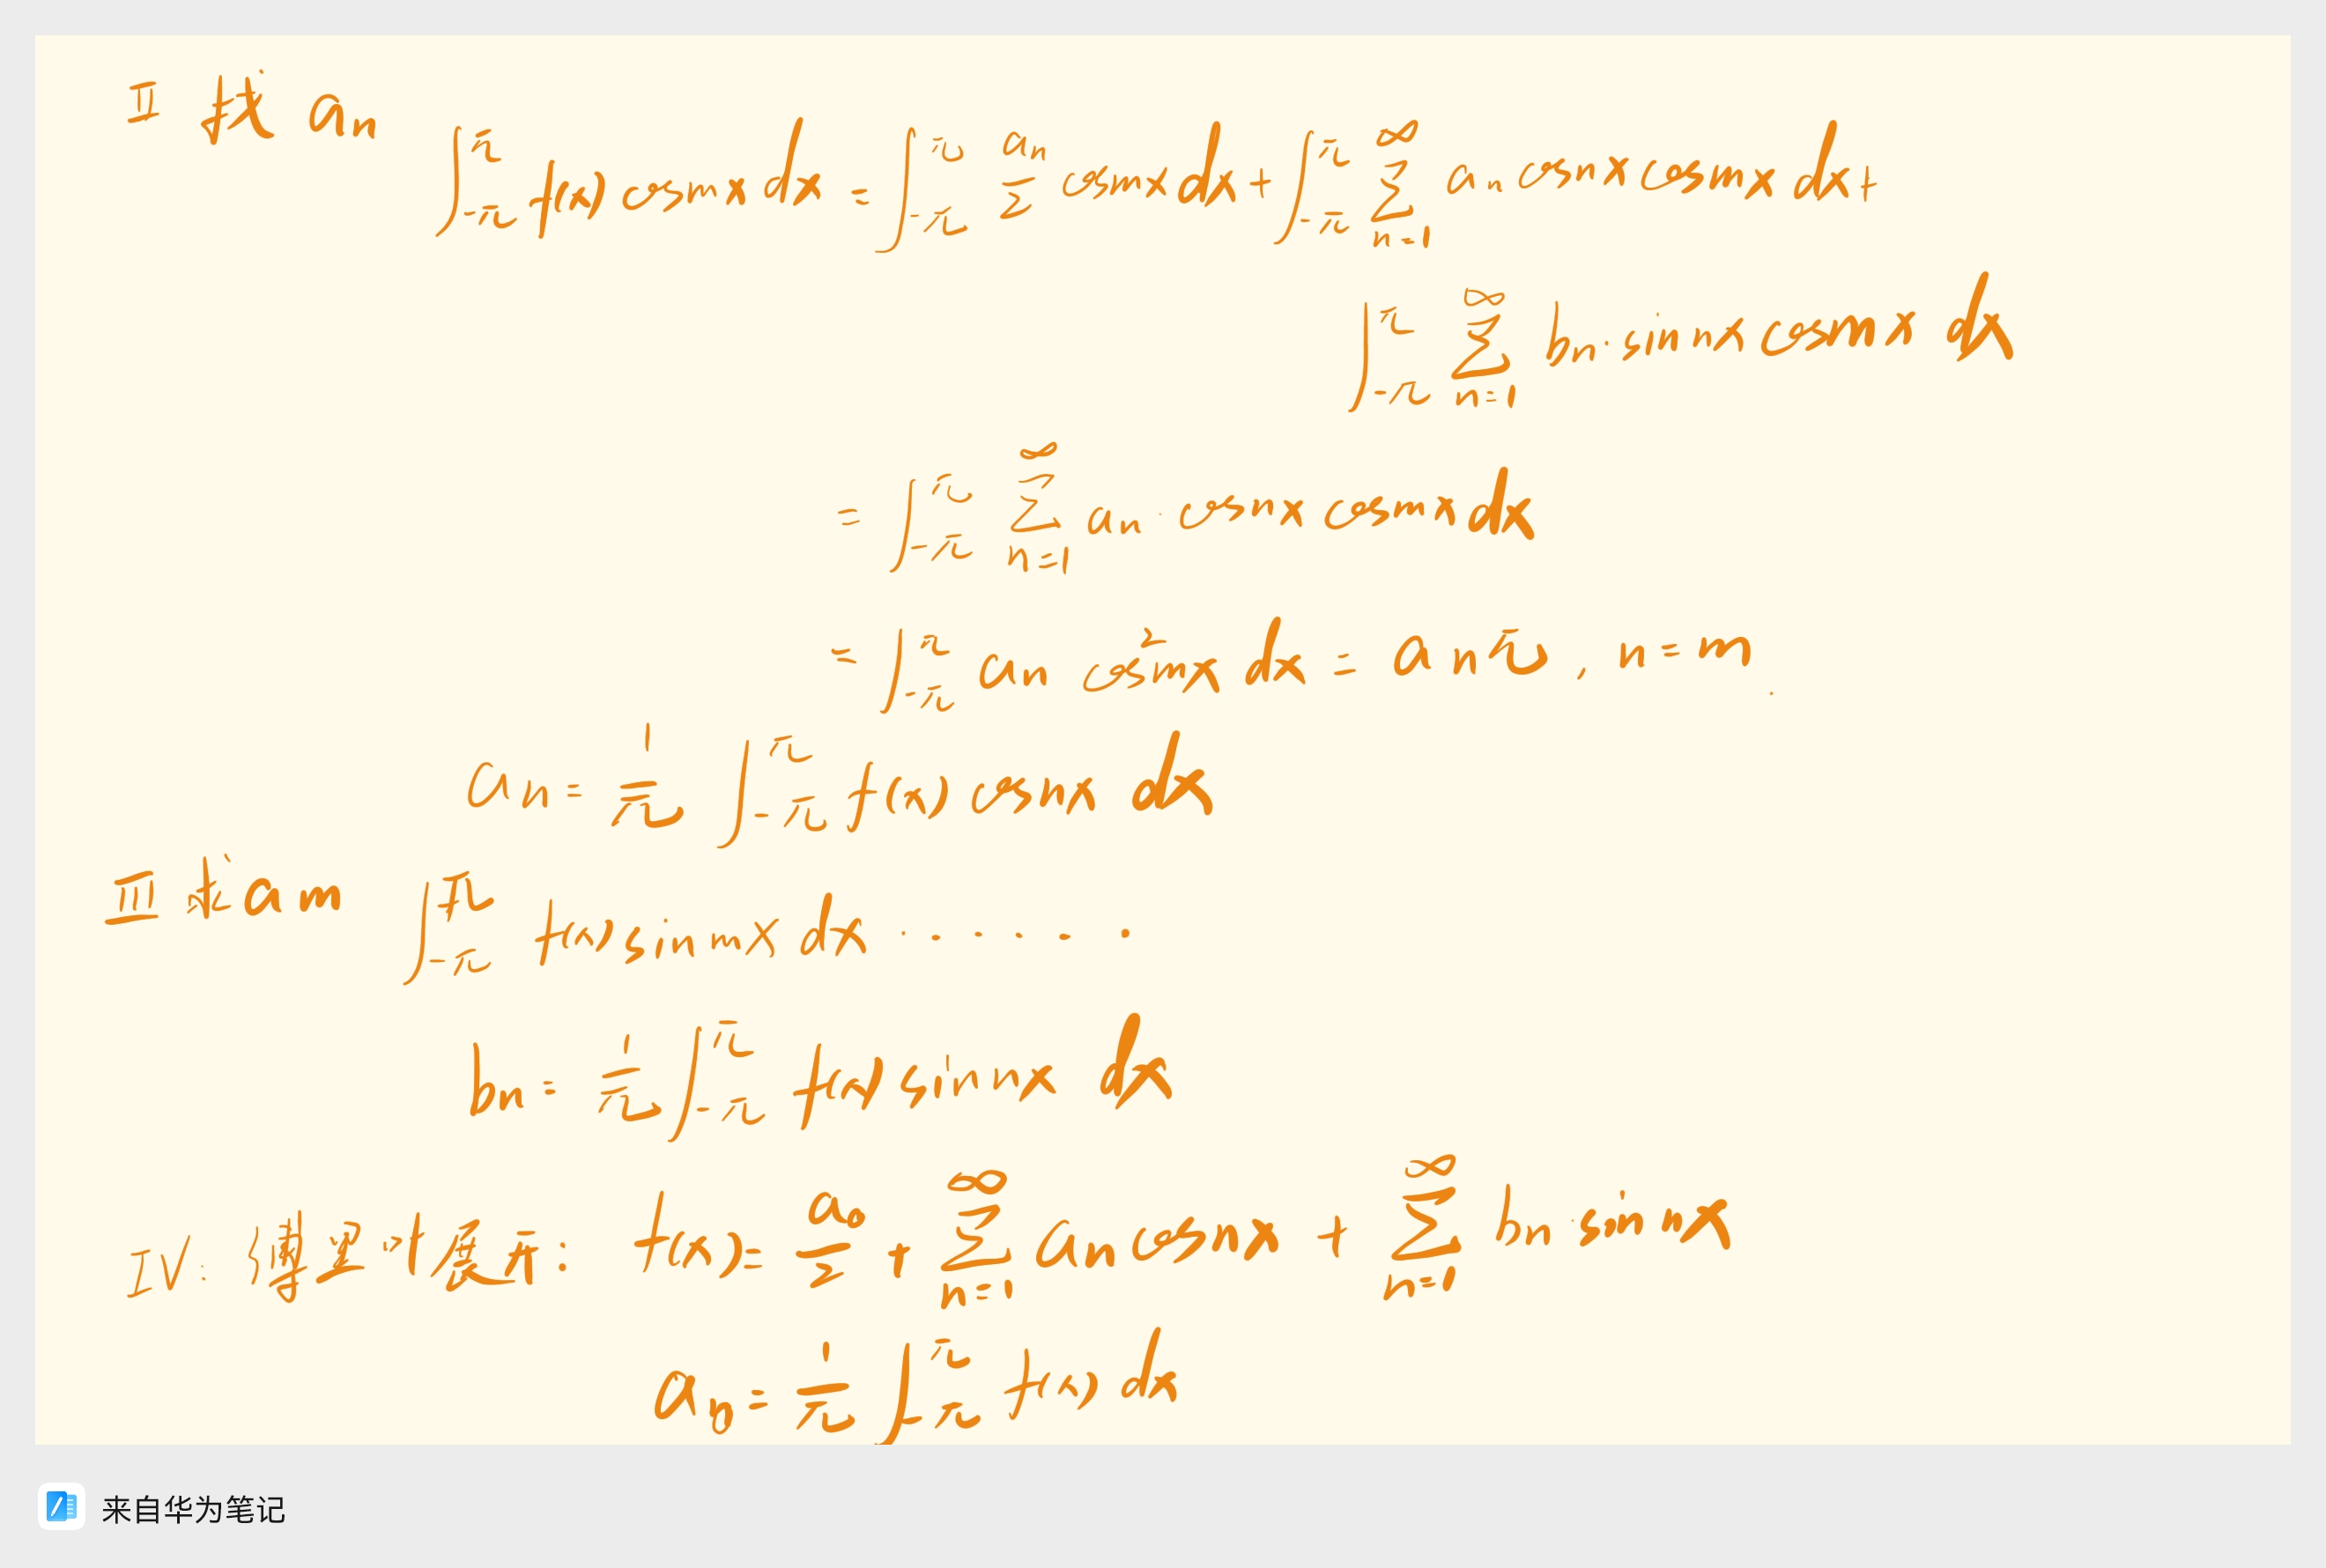 II 找 an
∫_{-π}^{π} f(x) cosmx dx = ∫_{-π}^{π} an/2 cosmx dx + ∫_{-π}^{π} ∑_{n=1}^{∞} an cosnx cosmx dx +
∫_{-π}^{π} ∑_{n=1}^{∞} bn · sinnx cosmx dx
= ∫_{-π}^{π} ∑_{n=1}^{∞} an · cosnx cosmx dx
= ∫_{-π}^{π} an cos²mx dx = anπ, n=m
an = 1/π ∫_{-π}^{π} f(x) cosnx dx
III 求 am
∫_{-π}^{π} f(x) sinmx dx · · · · · ·
bn = 1/π ∫_{-π}^{π} f(x) sinnx dx
IV: : f(x) = a0/2 + ∑_{n=1}^{∞} an cosnx + ∑_{n=1}^{∞} bn · sinnx
a0 = 1/π ∫_{-π}^{π} f(x) dx
来自华为笔记